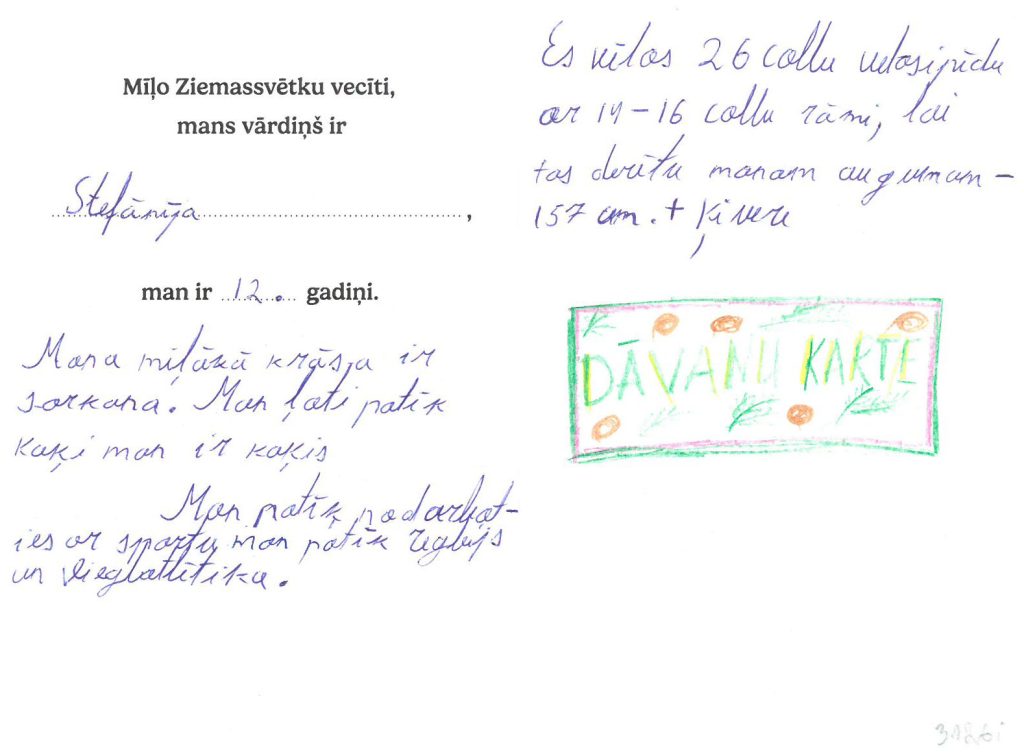 Mīļo Ziemassvētku vecīti,
mans vārdiņš ir
Stefānija,
man ir 12. gadiņi.
Mana mīļākā krāsja ir
sarkana. Man ļoti patīk
kaķi man ir kaķis
Man patīk nodarbat-
ies ar sportu man patīk regbijs
un vieglatlētika.
Es vēlos 26 collu velosipēdu
ar 14-16 collu rāmi, lai
tas derētu manam augumam -
157 cm. + ķivere
DĀVANU KARTE